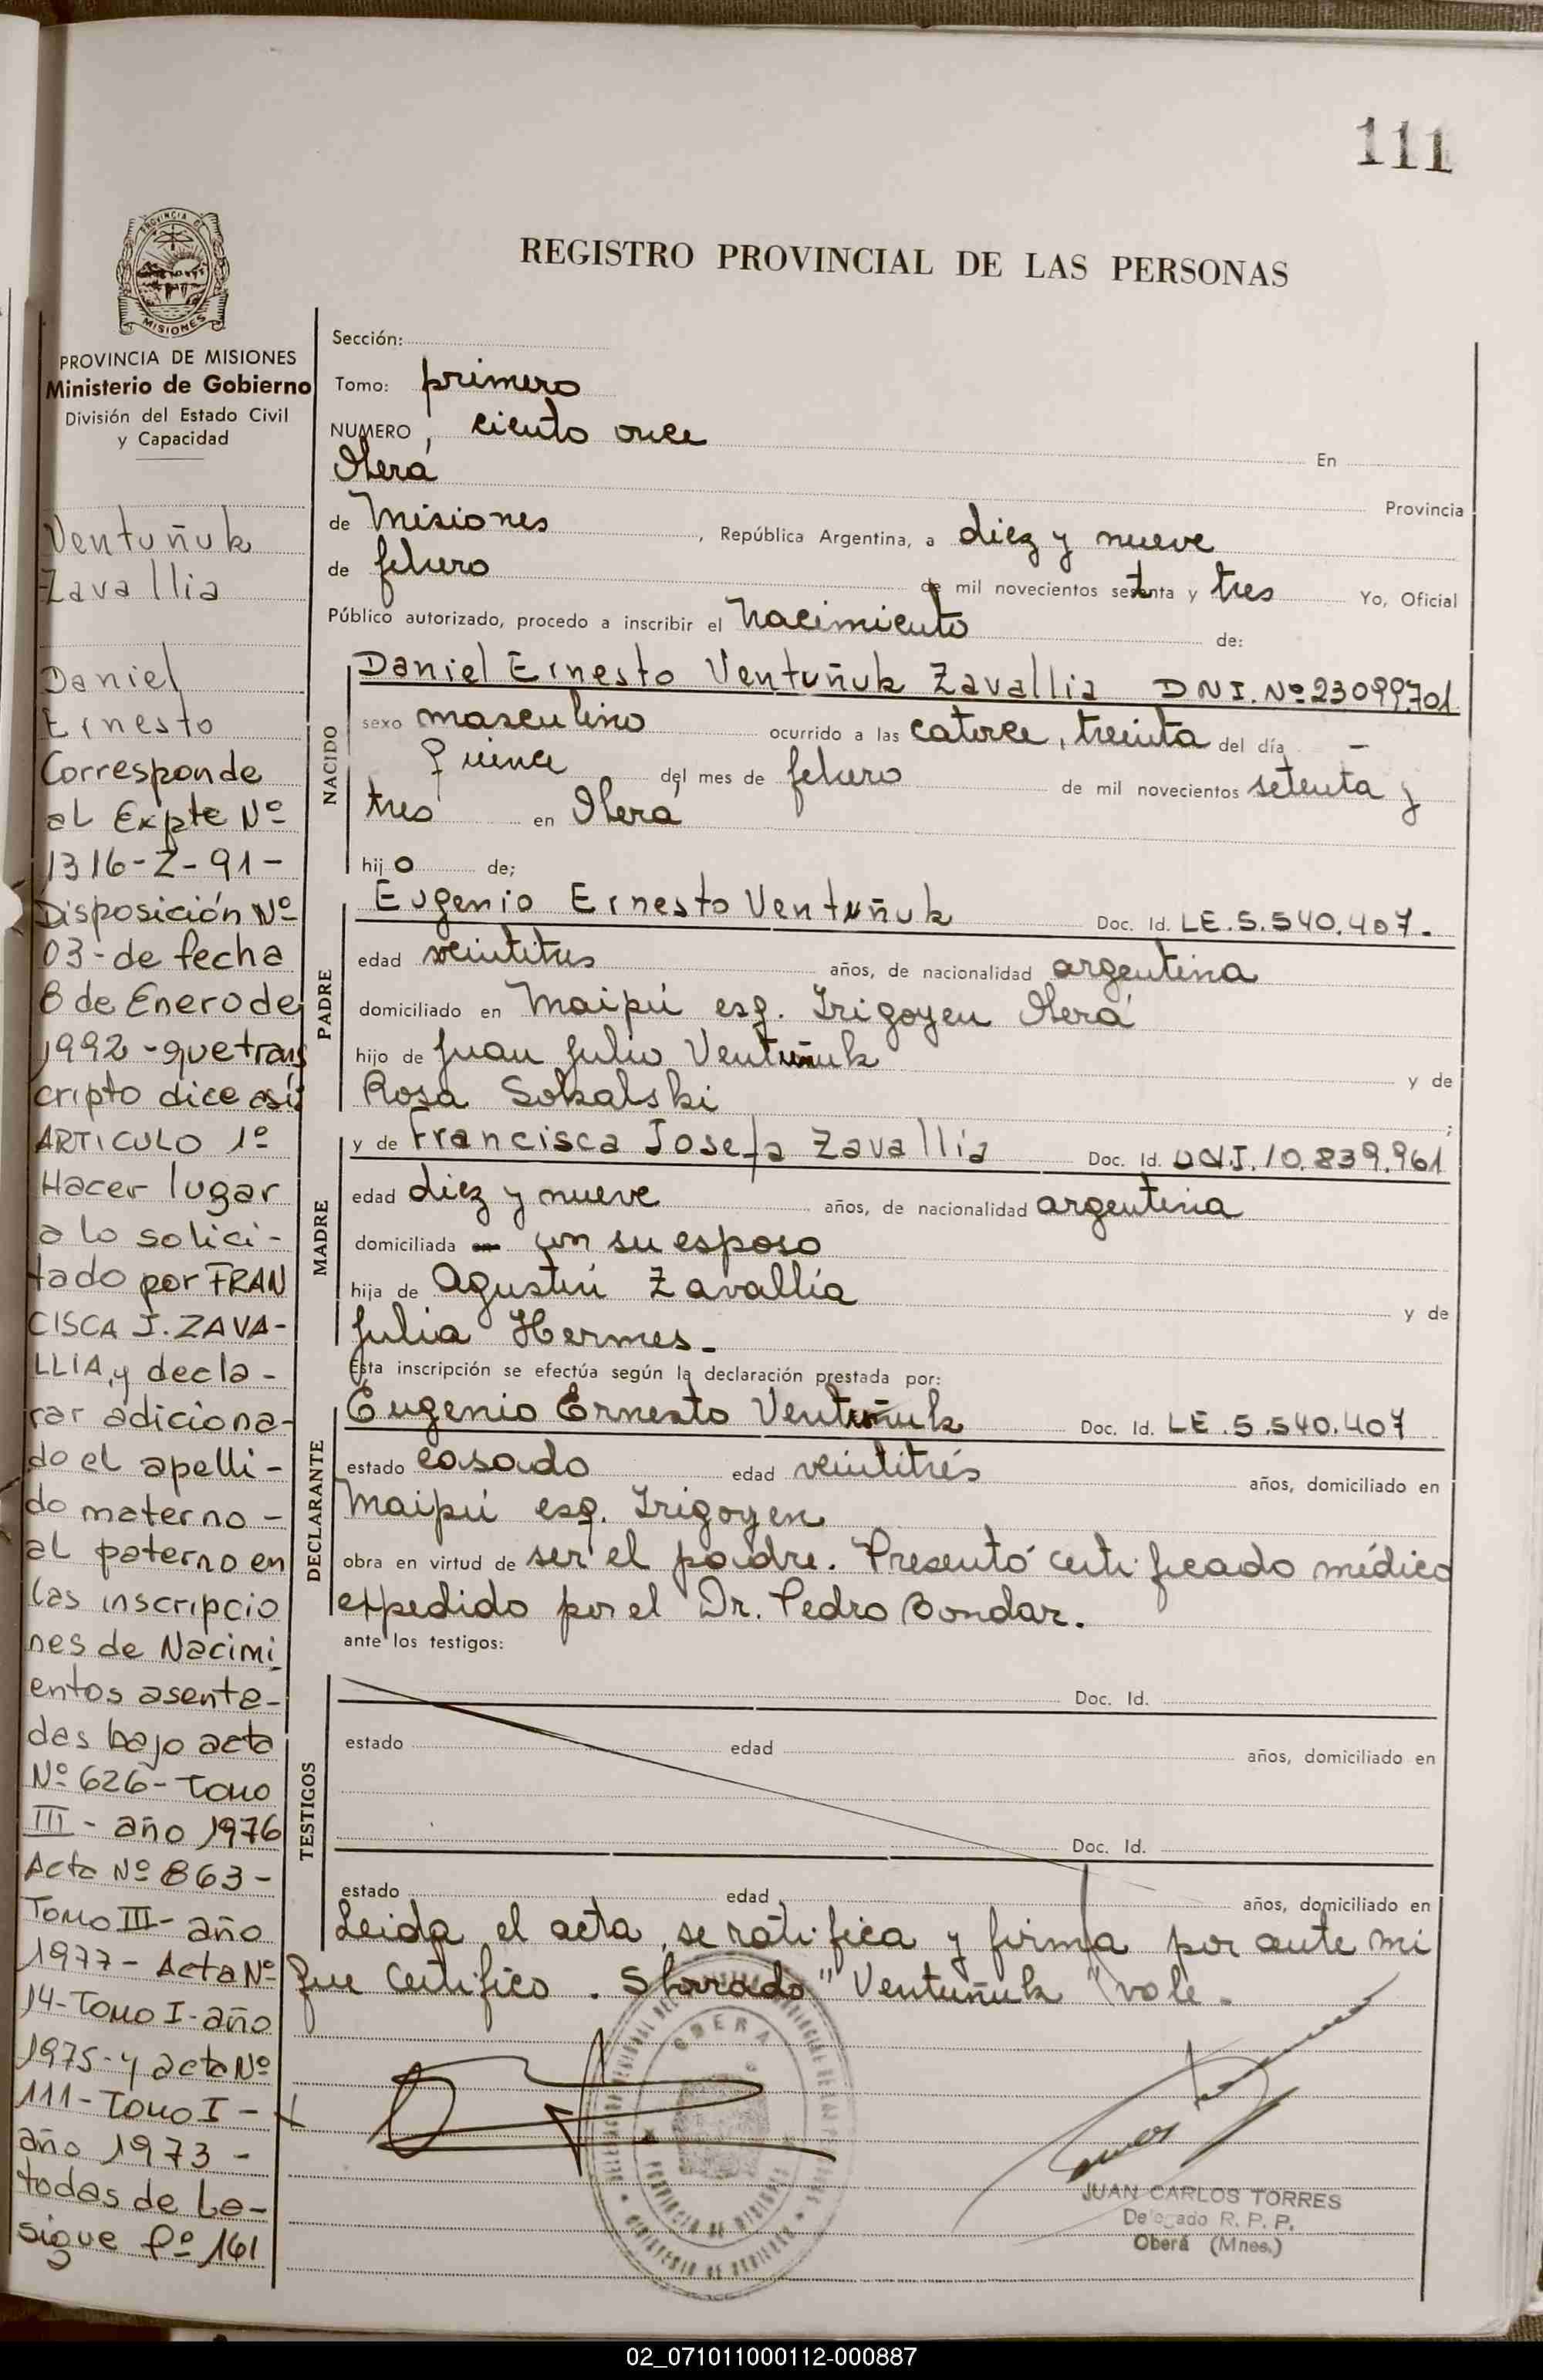 111
REGISTRO PROVINCIAL DE LAS PERSONAS
PROVINCIA DE
MISIONES
PROVINCIA DE MISIONES
Ministerio de Gobierno
División del Estado Civil
y Capacidad
Ventuñuk
Zavallia
Daniel
Ernesto
Corresponde
al Expte Nº
1316-Z-91-
Disposición Nº
03-de fecha
8 de Enero de
1992 - que trans
cripto dice así:
ARTICULO 1º
Hacer lugar
a lo solici-
tado por FRAN
CISCA J. ZAVA-
LLIA, y decla-
rar adiciona-
do el apelli-
do materno -
al paterno en
las inscripcio
nes de Nacimi
entos asenta-
das bajo acta
Nº 626 - Tomo
III - año 1976
Acta Nº 863 -
Tomo III - año
1977 - Acta Nº
14 - Tomo I - año
1975 - y acta Nº
111 - Tomo I -
año 1973 -
todas de la -
sigue fº 161
Sección:
Tomo: primero
NUMERO, ciento once En
Oberá Provincia
de Misiones, República Argentina, a diez y nueve
de febrero de mil novecientos setenta y tres Yo, Oficial
Público autorizado, procedo a inscribir el nacimiento de:
NACIDO
Daniel Ernesto Ventuñuk Zavallia DNI. Nº 23099.701
sexo masculino ocurrido a las catorce, treinta del día -
quince del mes de febrero de mil novecientos setenta y
tres en Oberá
hijo de;
PADRE
Eugenio Ernesto Ventuñuk Doc. Id. LE. 5.540.407.-
edad veintitres años, de nacionalidad argentina
domiciliado en Maipú esq. Irigoyen Oberá
hijo de Juan Julio Ventuñuk y de
Rosa Sokalski ;
MADRE
y de Francisca Josefa Zavallia Doc. Id. DNI. 10.839.961
edad diez y nueve años, de nacionalidad argentina
domiciliada en con su esposo
hija de Agustín Zavallia y de
Julia Hermes.-
Esta inscripción se efectúa según la declaración prestada por:
DECLARANTE
Eugenio Ernesto Ventuñuk Doc. Id. LE. 5.540.407
estado casado edad veintitrés años, domiciliado en
Maipú esq. Irigoyen
obra en virtud de ser el padre. Presentó certificado médico
expedido por el Dr. Pedro Bondar.
ante los testigos:
TESTIGOS
Doc. Id.
estado edad años, domiciliado en
Doc. Id.
estado edad años, domiciliado en
Leida el acta, se ratifica y firma por ante mi
que certifico. S/borrado "Ventuñuk" vale.-
OBERA
PROVINCIA DE MISIONES
MINISTERIO DE GOBIERNO
JUAN CARLOS TORRES
Delegado R. P. P.
Oberá (Mnes.)
02_071011000112-000887